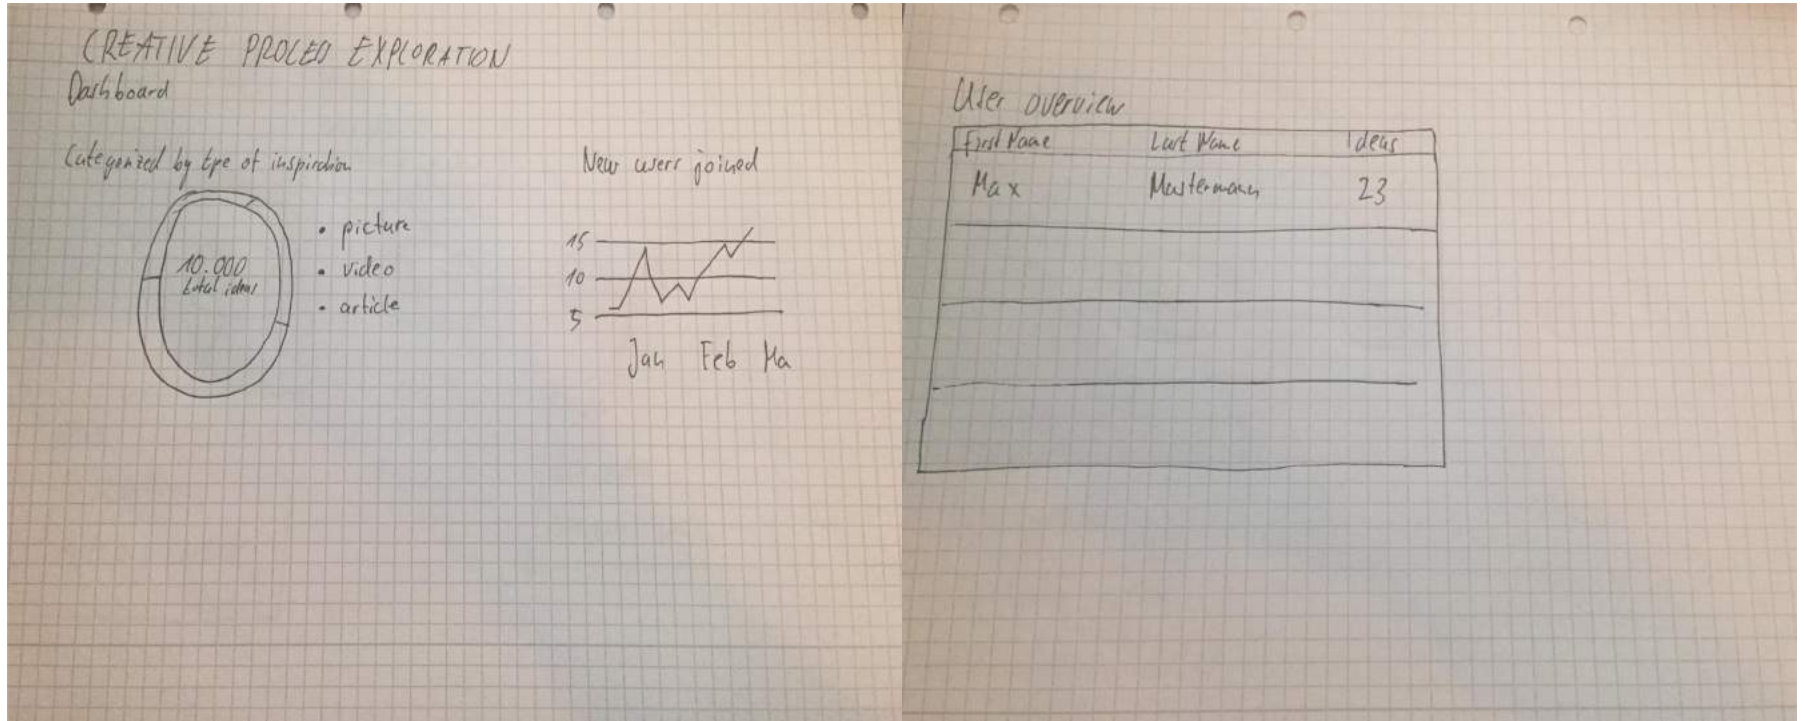 CREATIVE PROCESS EXPLORATION
Dashboard
Categorized by type of inspiration
10.000
total ideas
• picture
• video
• article
New users joined
15
10
5
Jan Feb Ma
User overview
First Name Last Name Ideas
Max Mustermann 23